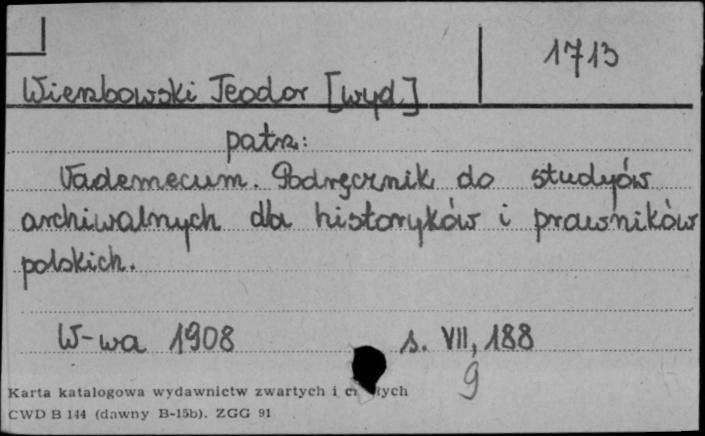 1713
Wierzbowski Teodor [wyd.]
patrz:
Vademecum. Podręcznik do studyów
archiwalnych dla historyków i prawników
polskich.
W-wa 1908 s. VII, 188
9
Karta katalogowa wydawnictw zwartych i
CWD B 144 (dawny B-15b). ZGG 91